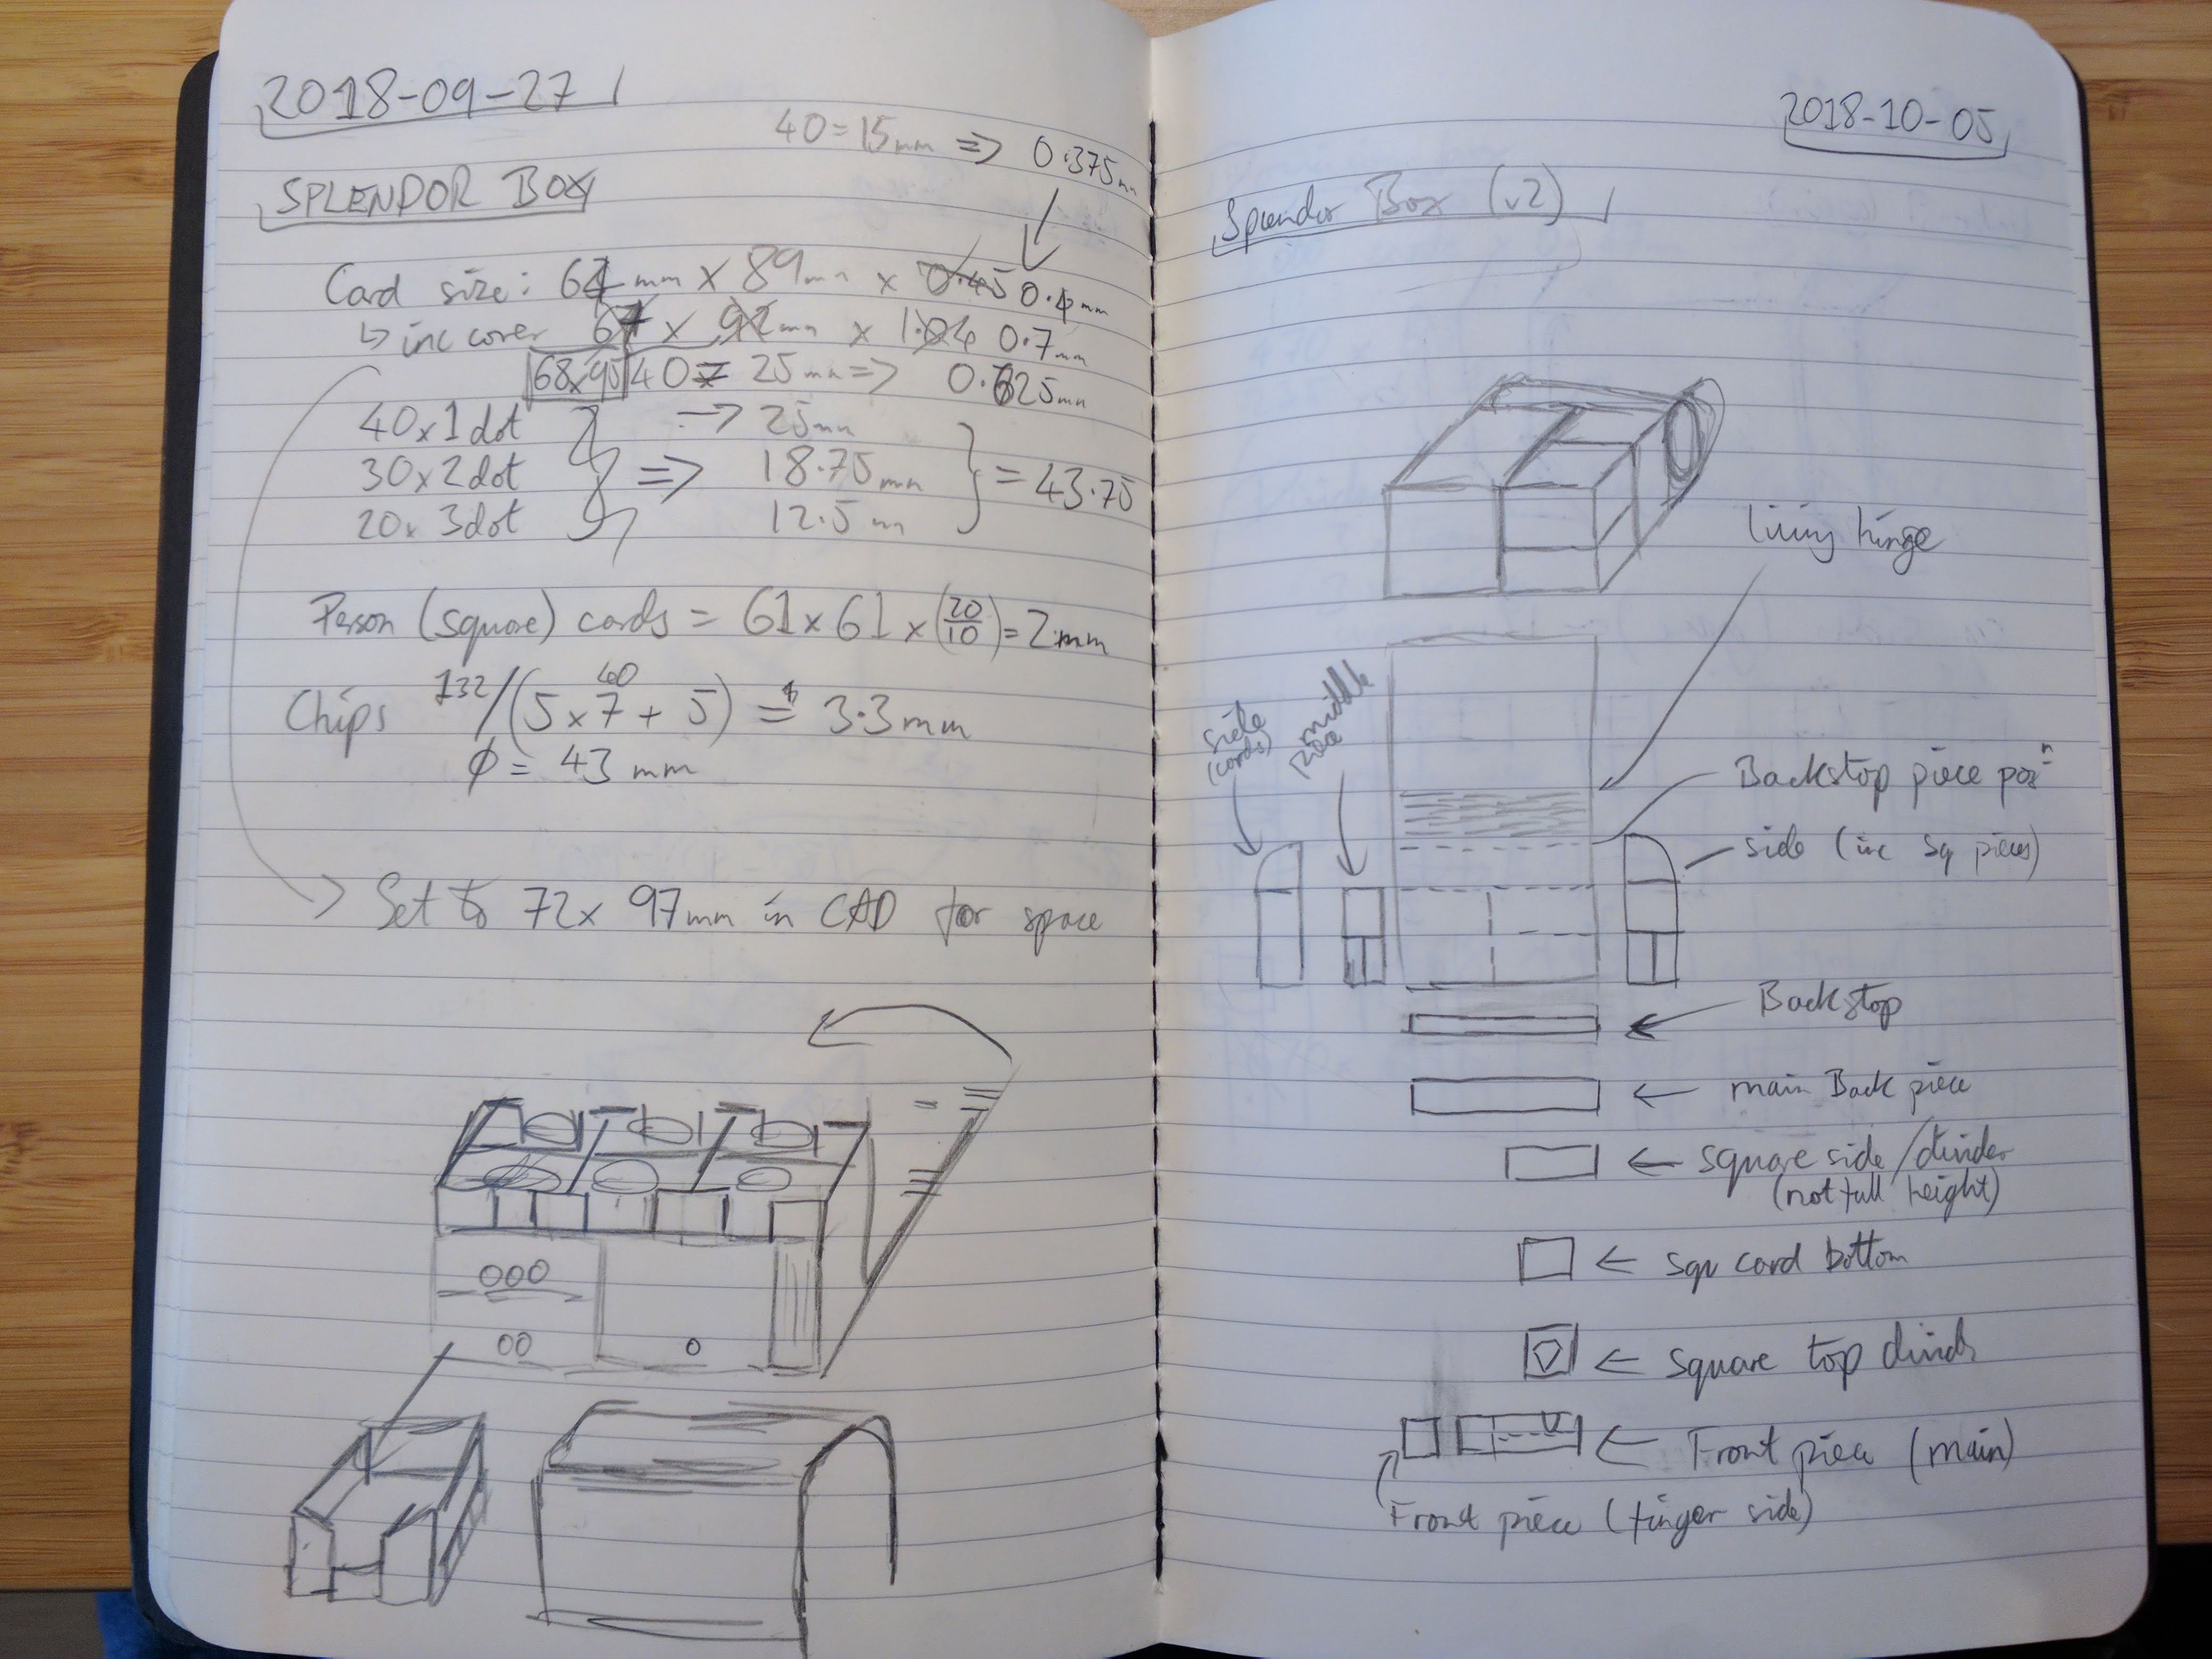 2018-09-27
40 = 15mm => 0.375mm
SPLENDOR BOX
Card size: 64mm x 89mm x 0.45 0.4mm
↳ inc cover 67 x 92mm x 1.04 0.7mm
68x95 40 = 25mm => 0.625mm
40 x 1 dot -> 25mm
30 x 2 dot => 18.75mm } = 43.75
20 x 3 dot 12.5m
Person (square) cards = 61 x 61 x (20/10) = 2mm
Chips 132/(5 x 7 + 5) = 3.3mm
40
φ = 43mm
-> Set to 72 x 97mm in CAD for space
000
00
0
2018-10-05
Splendor Box (v2)
living hinge
side (cards)
middle piece
Backstop piece posn
side (inc sq pieces)
Backstop
main Back piece
square side / divider
(not full height)
squ card bottom
square top divide
Front piece (main)
Front piece (finger side)